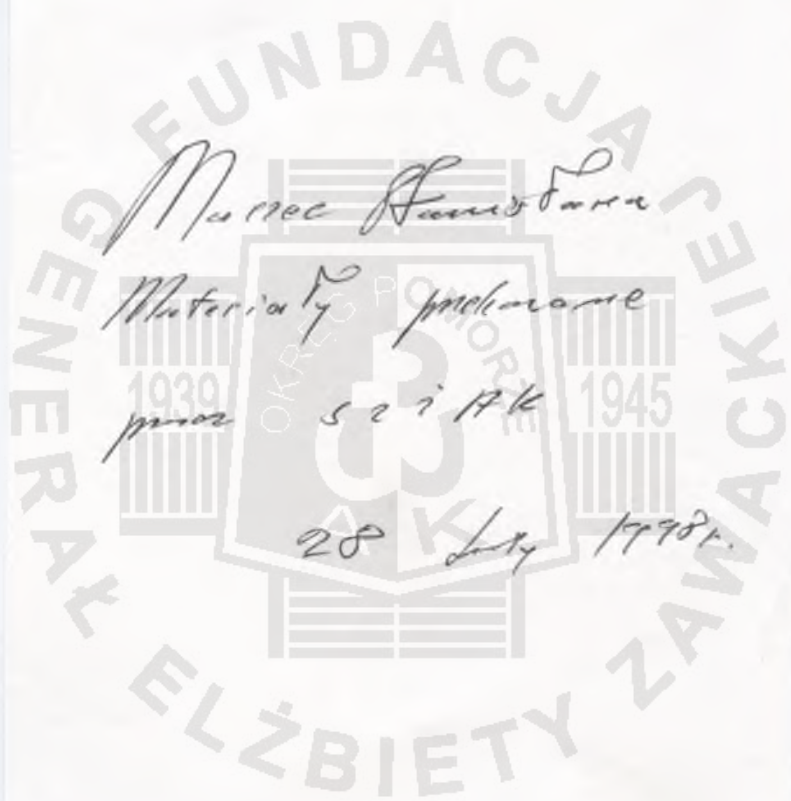 FUNDACJA GENERAŁ ELŻBIETY ZAWACKIEJ
OKRĘG POMORZE
1939
1945
AK
Marzec Stanisława
Materiały przekazane
przez
28 luty 1998r.